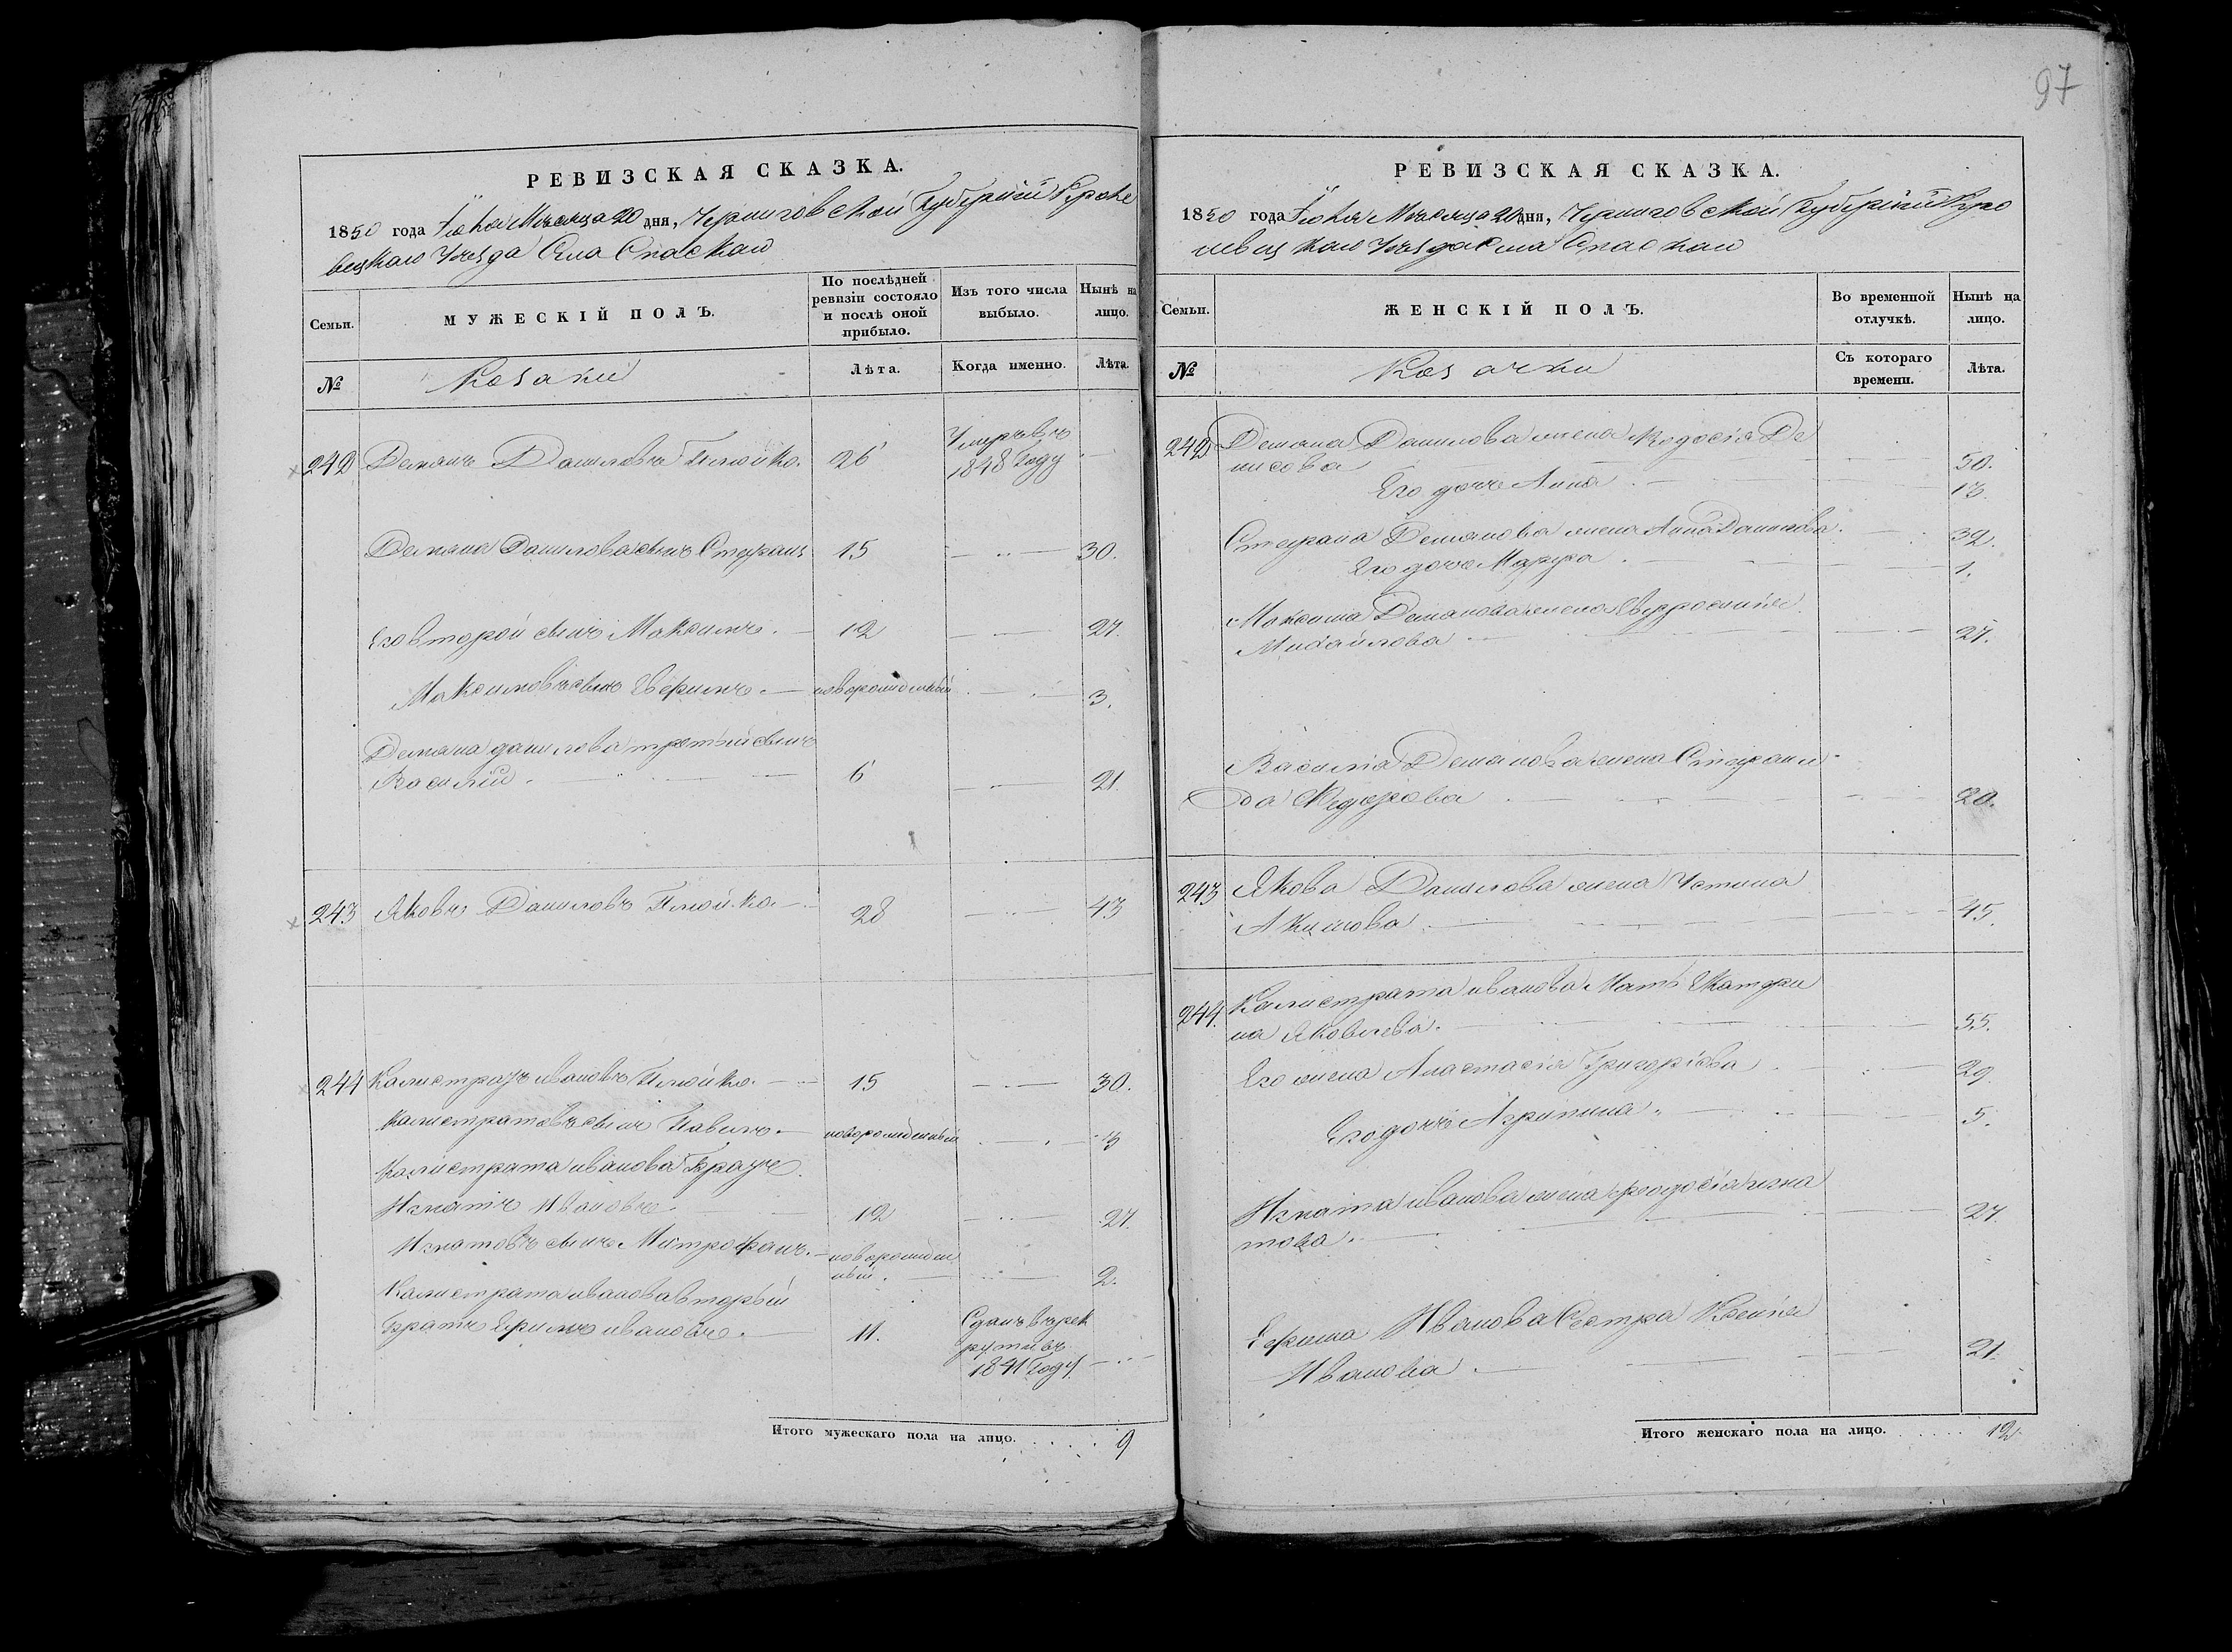 97
РЕВИЗСКАЯ СКАЗКА.
1850 года Июня Месяца 20 дня, Черниговской Губернии Кроле
вецкаго Уезда Села Спаскаго
Семьи.
МУЖЕСКІЙ ПОЛЪ.
По послѣдней ревизіи состояло и послѣ оной прибыло.
Изъ того числа выбыло.
Нынѣ на лицо.
№
Козаки
Лѣта.
Когда именно.
Лѣта.
242 Демянъ Даниловъ 26 Умеръ въ 1848 Году
Демяна Данилова сынъ Стефанъ 15 30.
Его второй сынъ Максимъ. 12 27.
Максимовъ сынъ Ефимъ. новорожденный 3.
Демяна Данилова третий сынъ
Василий 6 21.
243 Яковъ Даниловъ 28 43
244 Калистратъ Ивановъ 15 30.
Калистратовъ сынъ новорожденный
Калистрата Иванова братъ
Игнатъ Ивановъ. 12 27.
Игнатовъ сынъ Митрофанъ. новорожден
ный. 2.
Калистрата Иванова вторый
братъ Ефимъ Ивановъ. 11. Сданъ въ рек
руты въ
1841 Году
Итого мужескаго пола на лицо. 9
РЕВИЗСКАЯ СКАЗКА.
1850 года Июня Месяца 20 дня, Черниговской Губернии Кро
левецкаго Уезда Села Спаскаго
Семьи.
ЖЕНСКІЙ ПОЛЪ.
Во временной отлучкѣ.
Нынѣ на лицо.
№
Козачки
Съ котораго времени.
Лѣта.
242 Демяна Данилова жена Ѳедосія Де
нисова 50.
Его дочь Анна
Стефана Демянова жена Анна Данилова. 32.
Его дочь Марфа 1.
Максима Демянова жена Евфросинія
Михайлова 27.
Василія Демянова жена Степани
да Ѳедорова 20.
243 Якова Данилова жена Устина
Акимова 45.
244. Калистрата Иванова Мать Екатери
на Яковлева. 55.
Его жена Анастасія Григоріева 29
Его дочь Агрипина 5.
Игната Иванова жена Феодосія Игна
това. 27
Ефима Иванова Сестра Ксенія
Иванова 21.
Итого женскаго пола на лицо. 12